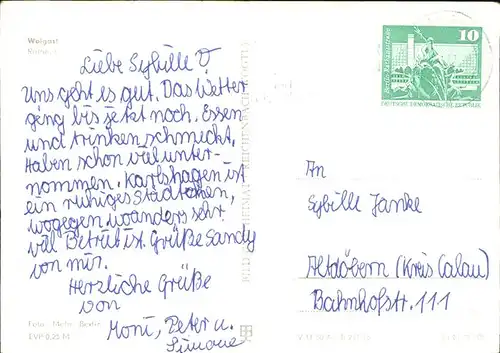 Wolgast
Liebe Sybille!
Uns geht es gut. Das Wetter
ging bis jetzt noch. Essen
und trinken schmeckt.
Haben schon viel unter-
nommen. Karlshagen ist
ein ruhiges Städtchen,
wogegen woanders sehr
viel Betrieb ist. Grüße Sandy
von mir.
Herzliche Grüße
von
Moni, Peter u.
Simone
Foto: Mohr, Berlin
EVP 0,20 M
BILD UND HEIMAT REICHENBACH (VOGTL)
10
DEUTSCHE DEMOKRATISCHE REPUBLIK
An
Sybille Janke
Altdöbern (Kreis Calau)
Bahnhofstr. 111